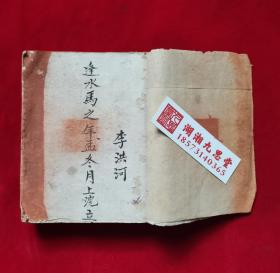 李洪河
逢水馬之年孟冬月上浣立
湖湘九思堂
18573140365